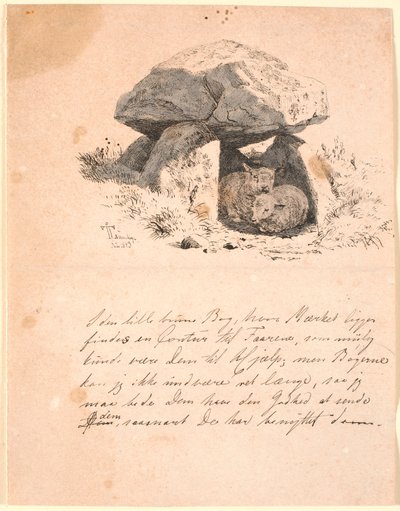 I den lille brune Bog, hvor Mærket ligger
findes en Contur til Faarene, som mulig
kunde være Dem til Hjælp; men Bøgerne
kan jeg ikke undvære ret længe, saa jeg
maa bede Dem have den Godhed at sende
dem, saasnart De har benyttet dem.